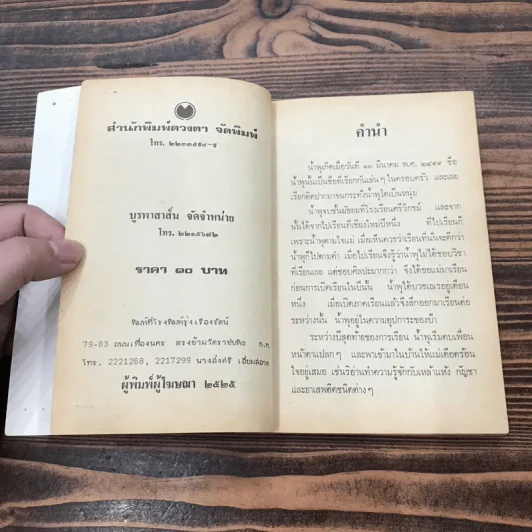 สำนักพิมพ์ดวงตา จัดพิมพ์
โทร. ๒๒๓๓๕๙๘-๙
บูรพาสาส์น จัดจำหน่าย
โทร. ๒๒๑๕๖๔๒
ราคา ๑๐ บาท
พิมพ์ที่โรงพิมพ์รุ่งเรืองรัตน์
79-83 ถนนเฟื่องนคร ตรงข้ามวัดราชบพิธ ก.ท.
โทร. 2221268, 2217299 นางสังศรี เอี่ยมสอาด
ผู้พิมพ์ผู้โฆษณา ๒๕๒๕
คำนำ
น้ำพุเกิดเมื่อวันที่ ๑๓ มีนาคม พ.ศ. ๒๔๙๙ ชื่อ
น้ำพุนั้นเป็นชื่อที่เรียกกันเล่นๆ ในครอบครัว และเลย
เรียกติดปากมาจนกระทั่งน้ำพุโตเป็นหนุ่ม
น้ำพุจบชั้นมัธยมที่โรงเรียนศรีวิกรม์ และจาก
นั้นได้จากไปเรียนที่เชียงใหม่ปีหนึ่ง ที่ไปเรียนก็
เพราะน้ำพุตามใจแม่ เมื่อเห็นควรว่าเรียนที่นั่นจะดีกว่า
น้ำพุก็ไปตามคำ เมื่อไปเรียนจึงรู้ว่าน้ำพุไม่ได้ชอบวิชา
ที่เรียนเลย แต่ชอบศิลปะมากกว่า จึงได้ขอแม่มาเรียน
ก่อนการเปิดเรียนในปีนั้น น้ำพุได้บวชเณรอยู่เดือน
หนึ่ง เมื่อเปิดภาคเรียนแล้วจึงสึกออกมาเรียนต่อ
ระหว่างนั้น น้ำพุอยู่ในความอุปการะของป้า
ระหว่างปีสุดท้ายของการเรียน น้ำพุเริ่มคบเพื่อน
หน้าตาแปลกๆ และพาเข้ามาในบ้านให้แม่เดือดร้อน
ใจอยู่เสมอ เช่นริอ่านทำความรู้จักกับเหล้าแห้ง กัญชา
และยาเสพติดชนิดต่างๆ